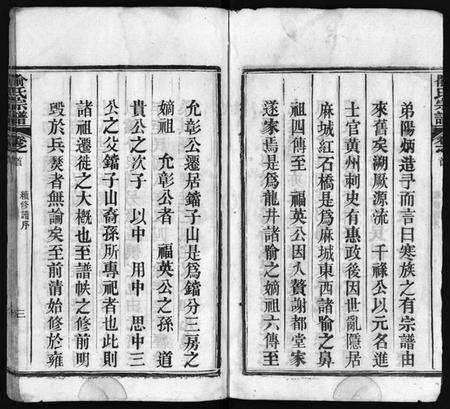 弟陽炳造予而言曰寒族之有宗譜由
來舊矣溯厥源流 千祿公以元名進
士官黃州刺史有惠政後因世亂隱居
麻城紅石橋是爲麻城東西諸喻之鼻
祖四傳至 福英公因入贅謝都堂家
遂家焉是爲龍井諸喻之嫡祖六傳至
允彰公遷居鐳子山是爲鐳分三房之
嫡祖 允彰公者 福英公之孫 道
貴公之次子 以中 用中 思中三
公之父鐳子山裔孫所專祀者也此則
諸祖遷徙之大概也至譜帙之修前明
毀於兵燹者無論矣至前清始修於雍
喻氏宗譜
卷首
續修譜序
三
喻氏宗譜
卷首